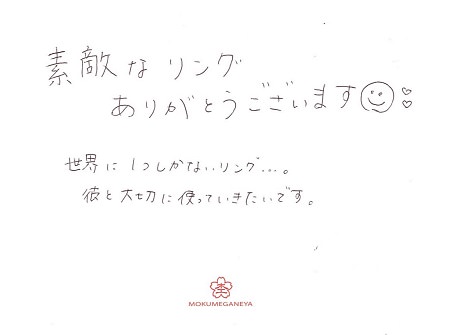 素敵なリング
ありがとうございます
世界に1つしかないリング…。
彼と大切に使っていきたいです。
MOKUMEGANEYA